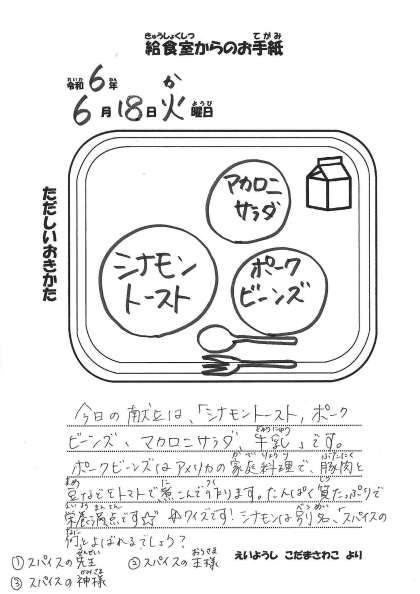 給食室からのお手紙
令和6年
6月18日火曜日
ただしいおきかた
マカロニ
サラダ
シナモン
トースト
ポーク
ビーンズ
今日の献立は、「シナモントースト，ポーク
ビーンズ、マカロニサラダ、牛乳」です。
ポークビーンズはアメリカの家庭料理で、豚肉と
豆などをトマトで煮こんで作ります。たんぱく質たっぷりで
栄養満点です☆ クイズです！シナモンは別名、「スパイスの
何」とよばれるでしょう？
①スパイスの先王 ②スパイスの王様
③スパイスの神様
えいようし こだまさわこ より